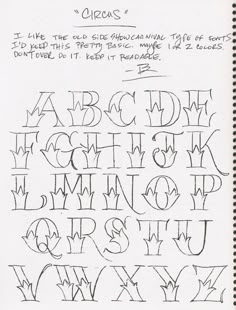 "CIRCUS"
I LIKE THE OLD SIDESHOW CARNIVAL TYPE OF FONTS
I'D KEEP THIS PRETTY BASIC. MAYBE 1 OR 2 COLORS.
DON'T OVER DO IT. KEEP IT READABLE.
A B C D E
F G H I J K
L M N O P
Q R S T U
V W X Y Z